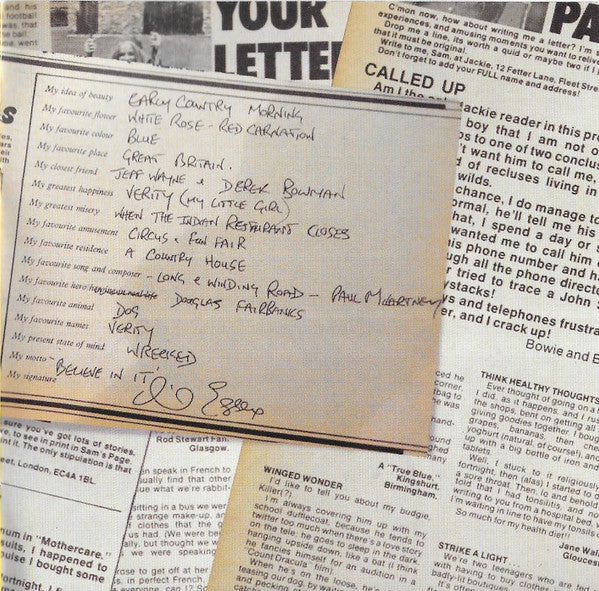 nd his
football
was, that
the ball.
me, went
YOUR
LETTE
PA
C'mon now, how about writing me a letter? I'm s
experiences, and amusing moments you want to relive
Drop me a line, its worth a quid or maybe two if I
that it must be original.
Write to me, Sam, at Jackie, 12 Fetter Lane, Fleet Stree
Don't forget to add your FULL name and address!
CALLED UP
Am I the
ackie reader in this pre
boy that I am not o
ps to one of two conclus
't want him to call me,
d of recluses living in
wilds.
chance, I do manage to
ormal, he'll tell me his
hat, I spend a day or s
wanted me to call him
his phone number and ha
ugh all the phone directo
r tried to trace a John S
ystacks!
ys and telephones frustra
er, and I crack up!
Bowie and B
My idea of beauty EARLY COUNTRY MORNING
My favourite flower WHITE ROSE - RED CARNATION
My favourite colour BLUE
My favourite place GREAT BRITAIN.
My closest friend JEFF WAYNE & DEREK BOWMAN
My greatest happiness VERITY (MY LITTLE GIRL)
My greatest misery WHEN THE INDIAN RESTAURANT CLOSES
My favourite amusement CIRCUS & FUN FAIR
My favourite residence A COUNTRY HOUSE
My favourite song and composer - LONG & WINDING ROAD - PAUL McCARTNEY
My favourite hero DOUGLAS FAIRBANKS
My favourite animal DOG
My favourite names VERITY
My present state of mind WRECKED
My motto "BELIEVE IN IT!"
My signature
sure you've got lots of stories,
to see in print in Sam's Page,
int it. The only stipulation is that
eet, London, EC4A 1BL.
Rod Stewart Fan,
Glasgow.
n speak in French to
usually find that other
ue what we're rabbit-
sitting in a bus we were
strange make-up, an
clothes that the g
us had. (We were be
ally, but thought we w
we were speaking
rose to get off at her
s, in perfect French,
num in "Mothercare,"
uits, I happened to
ouse I bought some
ortnight, I
WINGED WONDER
I'd like to tell you about my budgie,
Killer(?).
I'm always covering him up with my
school dufflecoat, because he tends to
twitter too much when there's a love story
on the box. He goes to sleep in the dark,
hanging upside down, like a bat (I think
he fancies himself for an audition in a
"Count Dracula" film).
When he's on the loose, he's
teasing our dog, by waiting
and pecking
A "True Blue,"
Kingshurst,
Birmingham.
THINK HEALTHY THOUGHTS
Ever thought of going on a
I did, as it happens, and I rus
the shops, bent on getting all
giving goodies together. I boug
grapes, bananas, then chee
yoghurt (natural, of course!), and
up with a big bottle of iron and
tablets.
Well, I stuck to it religiously
fortnight, then (alas) I started to d
a sore throat. Then, lo and behold
told that I had tonsilitis, and no
writing to you from a hospital bed, w
I'm waiting in line to have my tonsils o
So much for my health diet!!
Jane Wal
Glouces
STRIKE A LIGHT
We're two teenagers who are fed
with having to buy clothes
badly-lit boutiques.